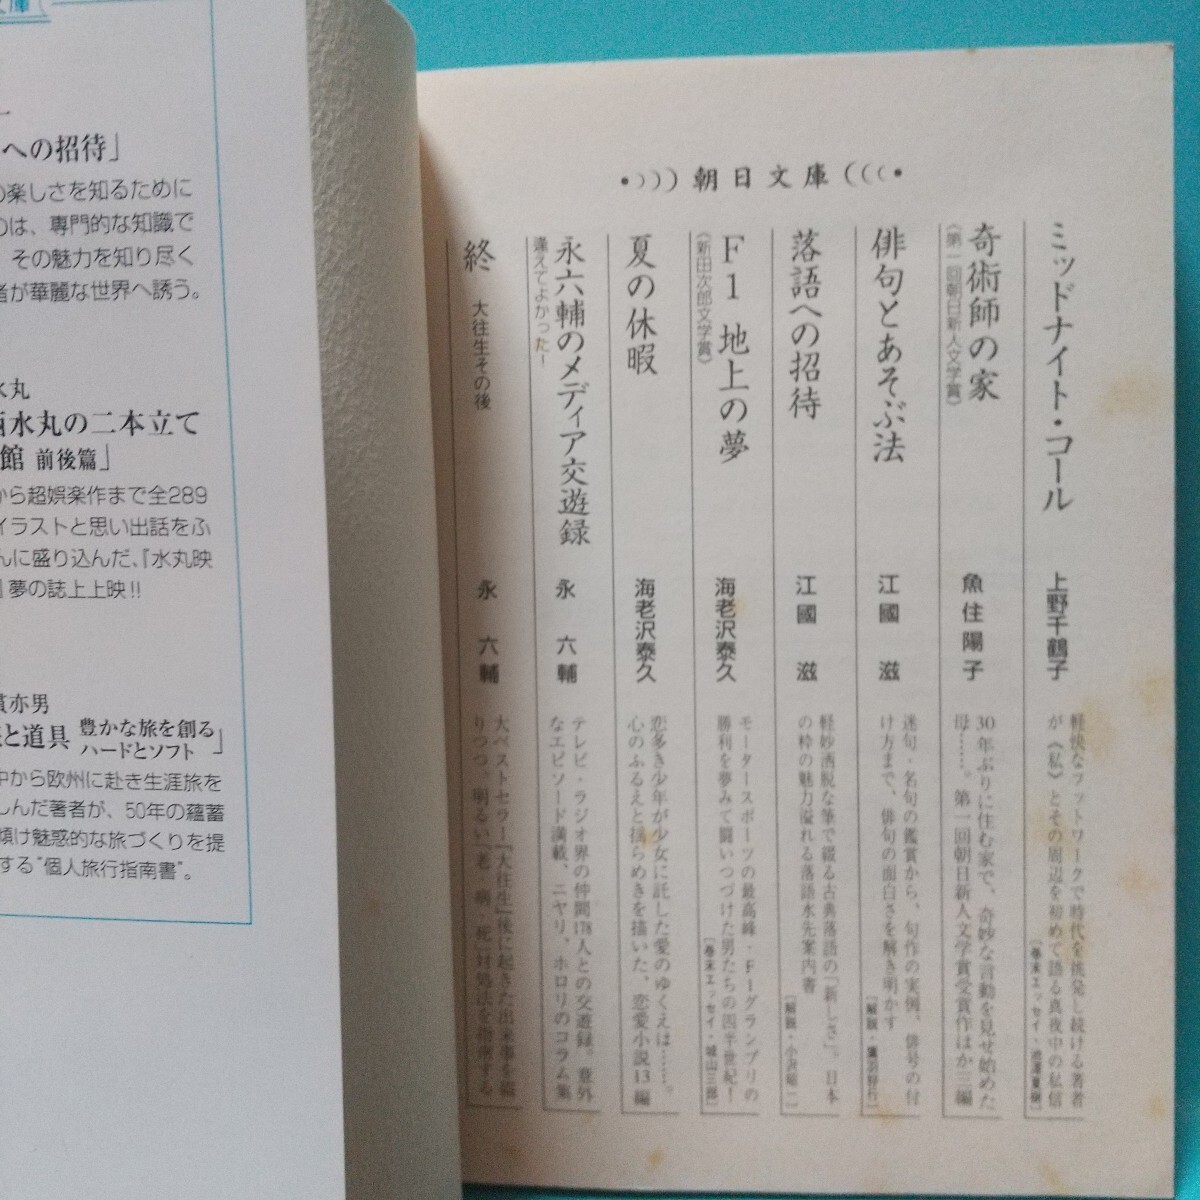 朝日文庫
ミッドナイト・コール
上野千鶴子
軽快なフットワークで時代を挑発し続ける著者
が〈私〉とその周辺を初めて語る真夜中の私信
〔巻末エッセイ・池澤夏樹〕
奇術師の家
《第一回朝日新人文学賞》
魚住陽子
30年ぶりに住む家で、奇妙な言動を見せ始めた
母……。第一回朝日新人文学賞受賞作ほか三編
俳句とあそぶ法
江國 滋
迷句・名句の鑑賞から、句作の実例、俳号の付
け方まで、俳句の面白さを解き明かす
〔解説・鷹羽狩行〕
落語への招待
江國 滋
軽妙洒脱な筆で綴る古典落語の「新しさ」。日本
の粋の魅力溢れる落語水先案内書
〔解説・小沢昭一〕
F1 地上の夢
《新田次郎文学賞》
海老沢泰久
モータースポーツの最高峰・F1グランプリの
勝利を夢みて闘いつづけた男たちの四半世紀！
〔巻末エッセイ・城山三郎〕
夏の休暇
海老沢泰久
恋多き少年が少女に託した愛のゆくえは……。
心のふるえと揺らめきを描いた、恋愛小説13編
永六輔のメディア交遊録
逢えてよかった！
永 六輔
テレビ・ラジオ界の仲間178人との交遊録。意外
なエピソード満載、ニヤリ、ホロリのコラム集
終 大往生その後
永 六輔
大ベストセラー『大往生』後に起きた出来事を綴
りつつ、明るい「老・病・死」対処法を指南する
庫
への招待」
の楽しさを知るために
のは、専門的な知識で
その魅力を知り尽く
者が華麗な世界へ誘う。
水丸
西水丸の二本立て
館 前後篇」
から超娯楽作まで全289
イラストと思い出話をふ
んに盛り込んだ、『水丸映
』夢の誌上上映!!
貫亦男
と道具 豊かな旅を創る
ハードとソフト」
中から欧州に赴き生涯旅を
しんだ著者が、50年の蘊蓄
傾け魅惑的な旅づくりを提
する“個人旅行指南書”。